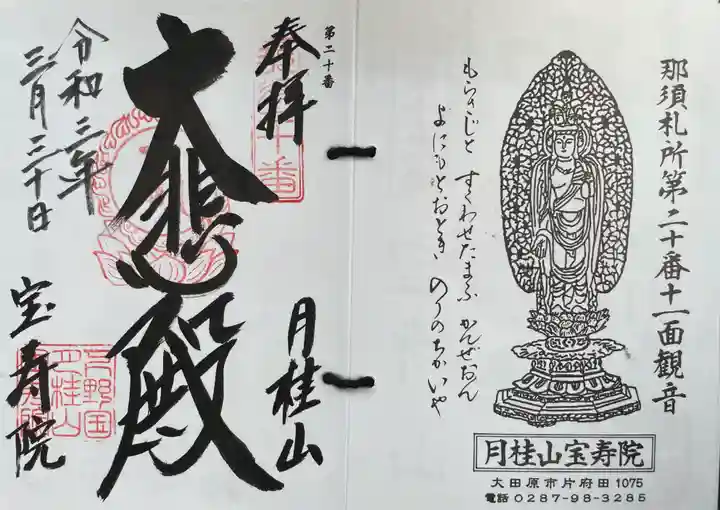 那須札所第二十番十一面観音
もらさじと すくわせたまふ かんぜおん
よにもをおとき のりのちかいや
月桂山宝寿院
大田原市片府田1075
電話0287-98-3285
第二十番
奉拝
月桂山
大悲殿
令和三年
三月三十日
宝寿院